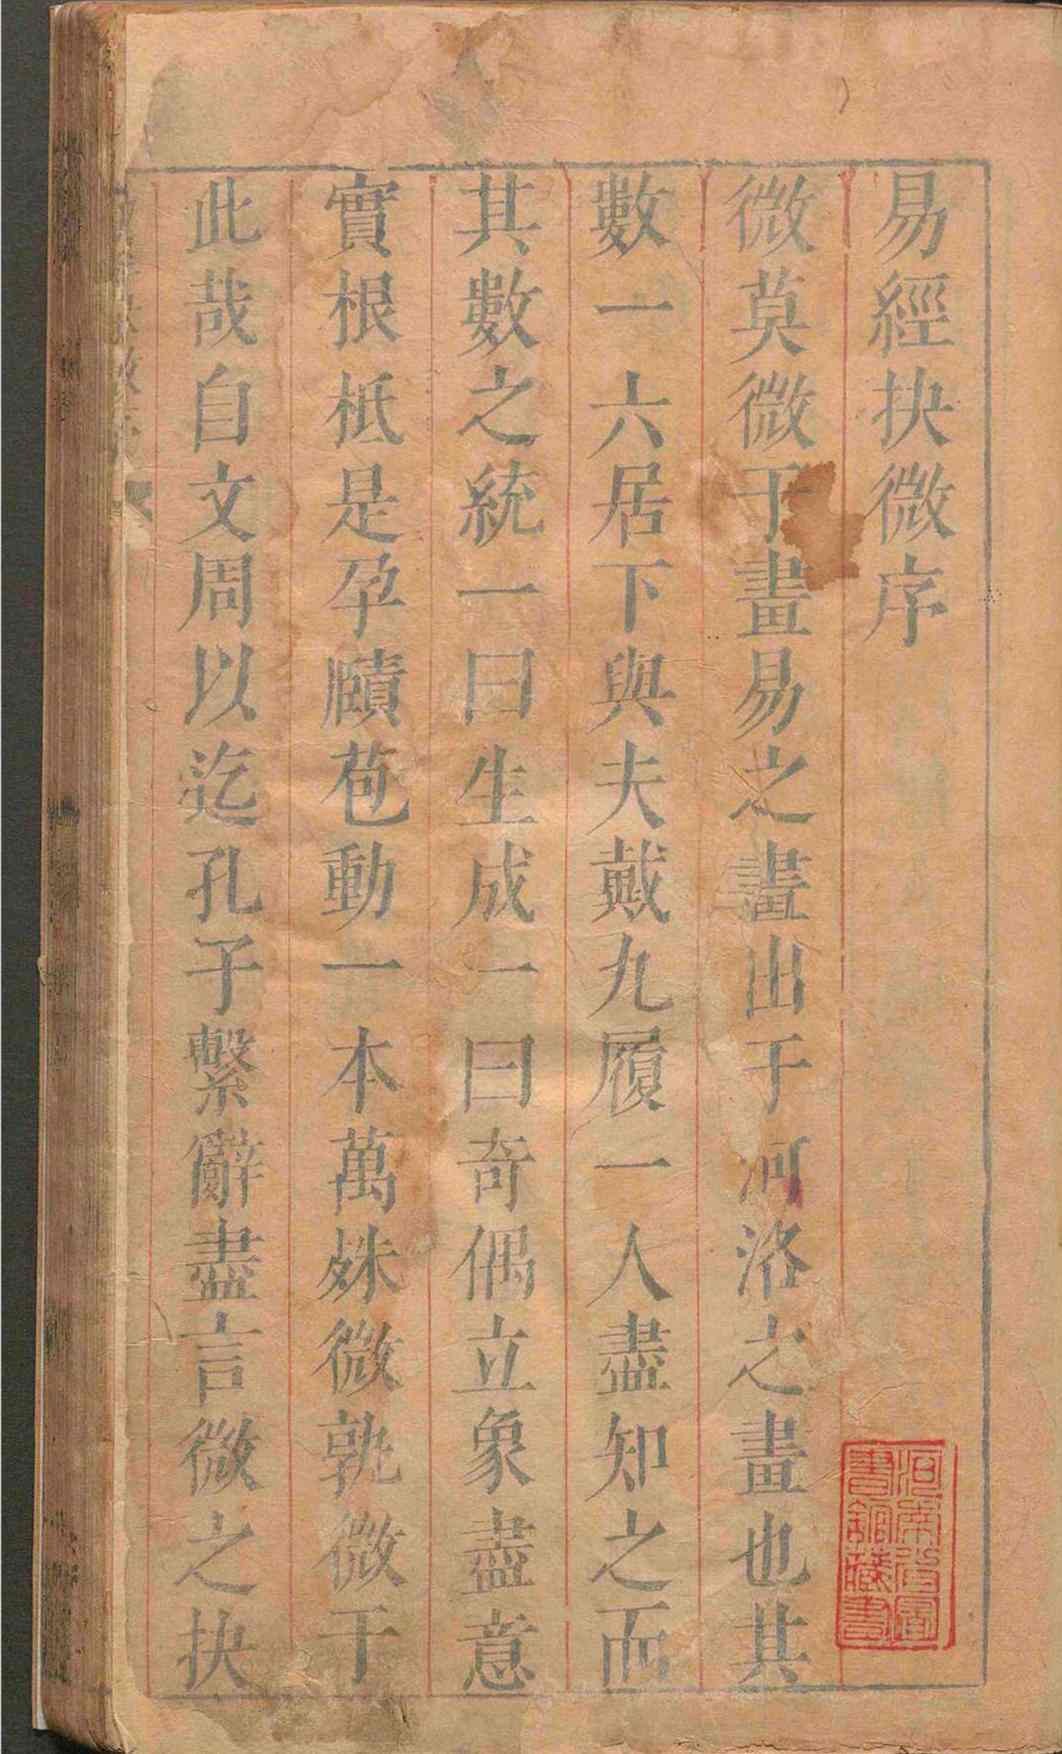 易經抉微序
微莫微于畫易之畫出于河洛之畫也其
數一六居下與夫戴九履一人盡知之而
其數之統一曰生成一曰奇偶立象盡意
實根柢是孕賾苞動一本萬殊微孰微于
此哉自文周以迄孔子繫辭盡言微之抉
河南省圖
書館藏書